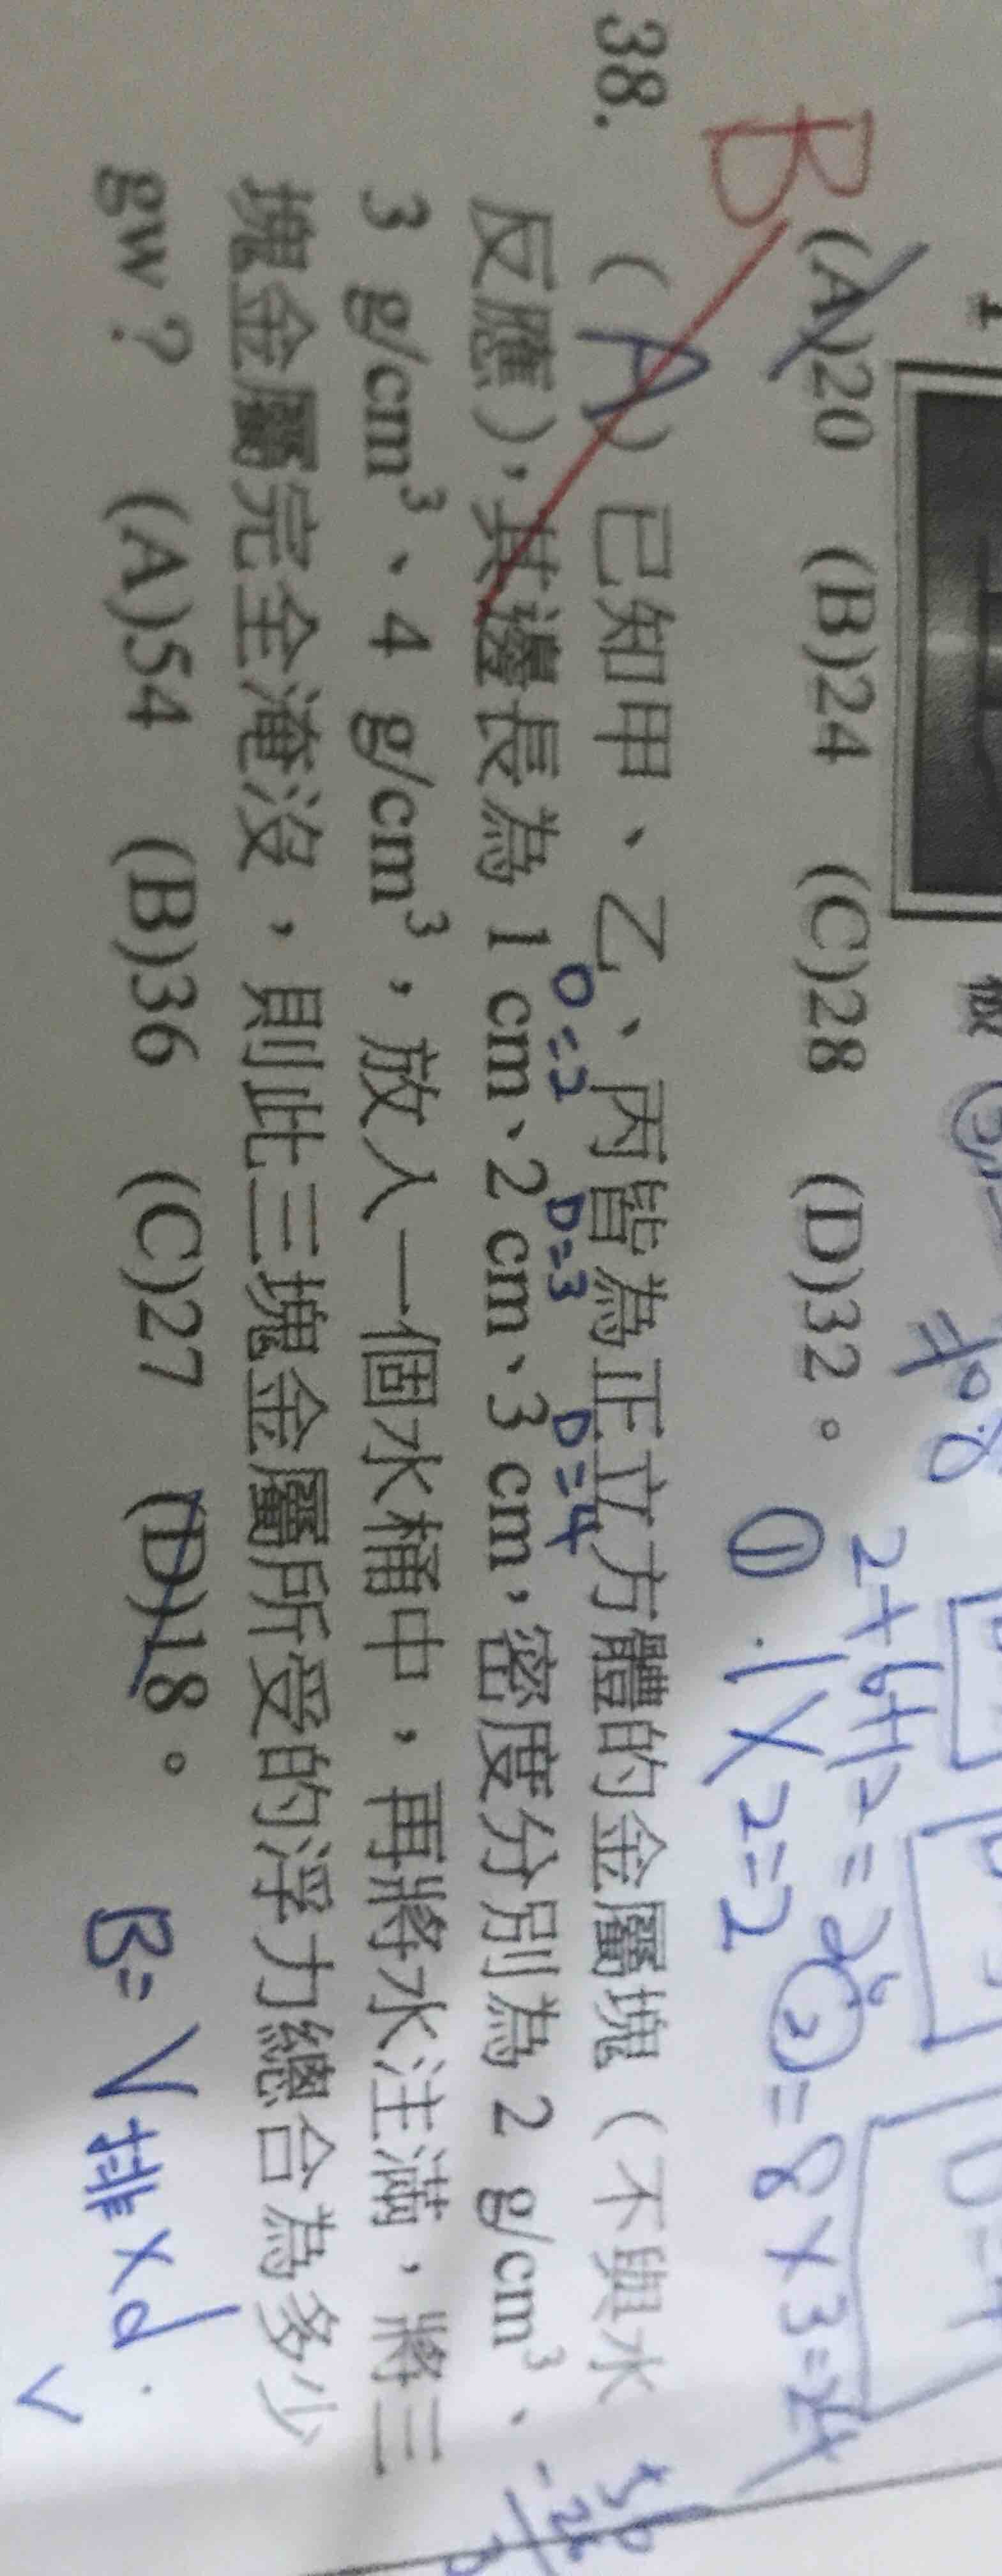 (A)20 (B)24 (C)28 (D)32。
B
2+6+12=20
① 1×2=2 ②=8×3=24
38. (A)已知甲、乙、丙皆為正立方體的金屬塊(不與水
D=2 D=3 D=4
反應),其邊長為 1 cm、2 cm、3 cm,密度分別為 2 g/cm³、
3 g/cm³、4 g/cm³,放入一個水桶中,再將水注滿,將三
塊金屬完全淹沒,則此三塊金屬所受的浮力總合為多少
gw? (A)54 (B)36 (C)27 (D)18。
B=V排×d